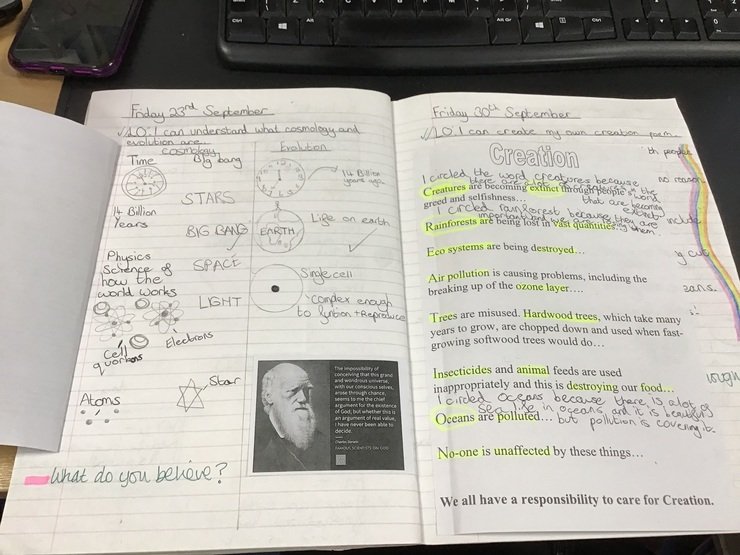 Friday 23rd September
✓LO: I can understand what cosmology and
evolution are.
cosmology
Time
Big bang
14 Billion
Years
STARS
BIG BANG
SPACE
LIGHT
Physics
Science of
how the
world works
Cell
Electrons
Atoms
Star
What do you believe?
Evolution
14 Billion
years ago.
Life on earth
EARTH
Single cell
complex enough
The impossibility of
conceiving that this grand
and wondrous universe,
with our conscious selves,
arose through chance,
seems to me the chief
argument for the existence
of God; but whether this is
an argument of real value,
I have never been able to
decide.
Charles Darwin
FAMOUS SCIENTISTS ON GOD
Friday 30th September
✓LO: I can create my own creation poem.
Creation
I circled the word creatures because
there are
of the
that are becoming
extinct
Creatures are becoming extinct through people's
greed and selfishness…
I circled rainforest because they are
important and
them.
Rainforests are being lost in vast quantities
Eco systems are being destroyed…
Air pollution is causing problems, including the
breaking up of the ozone layer….
Trees are misused. Hardwood trees, which take many
years to grow, are chopped down and used when fast-
growing softwood trees would do…
Insecticides and animal feeds are used
inappropriately and this is destroying our food…
I circled oceans because there is a lot of
sealife in oceans, and it is beautiful
but pollution is covering it.
Oceans are polluted…
No-one is unaffected by these things…
We all have a responsibility to care for Creation.
people
no reason
include